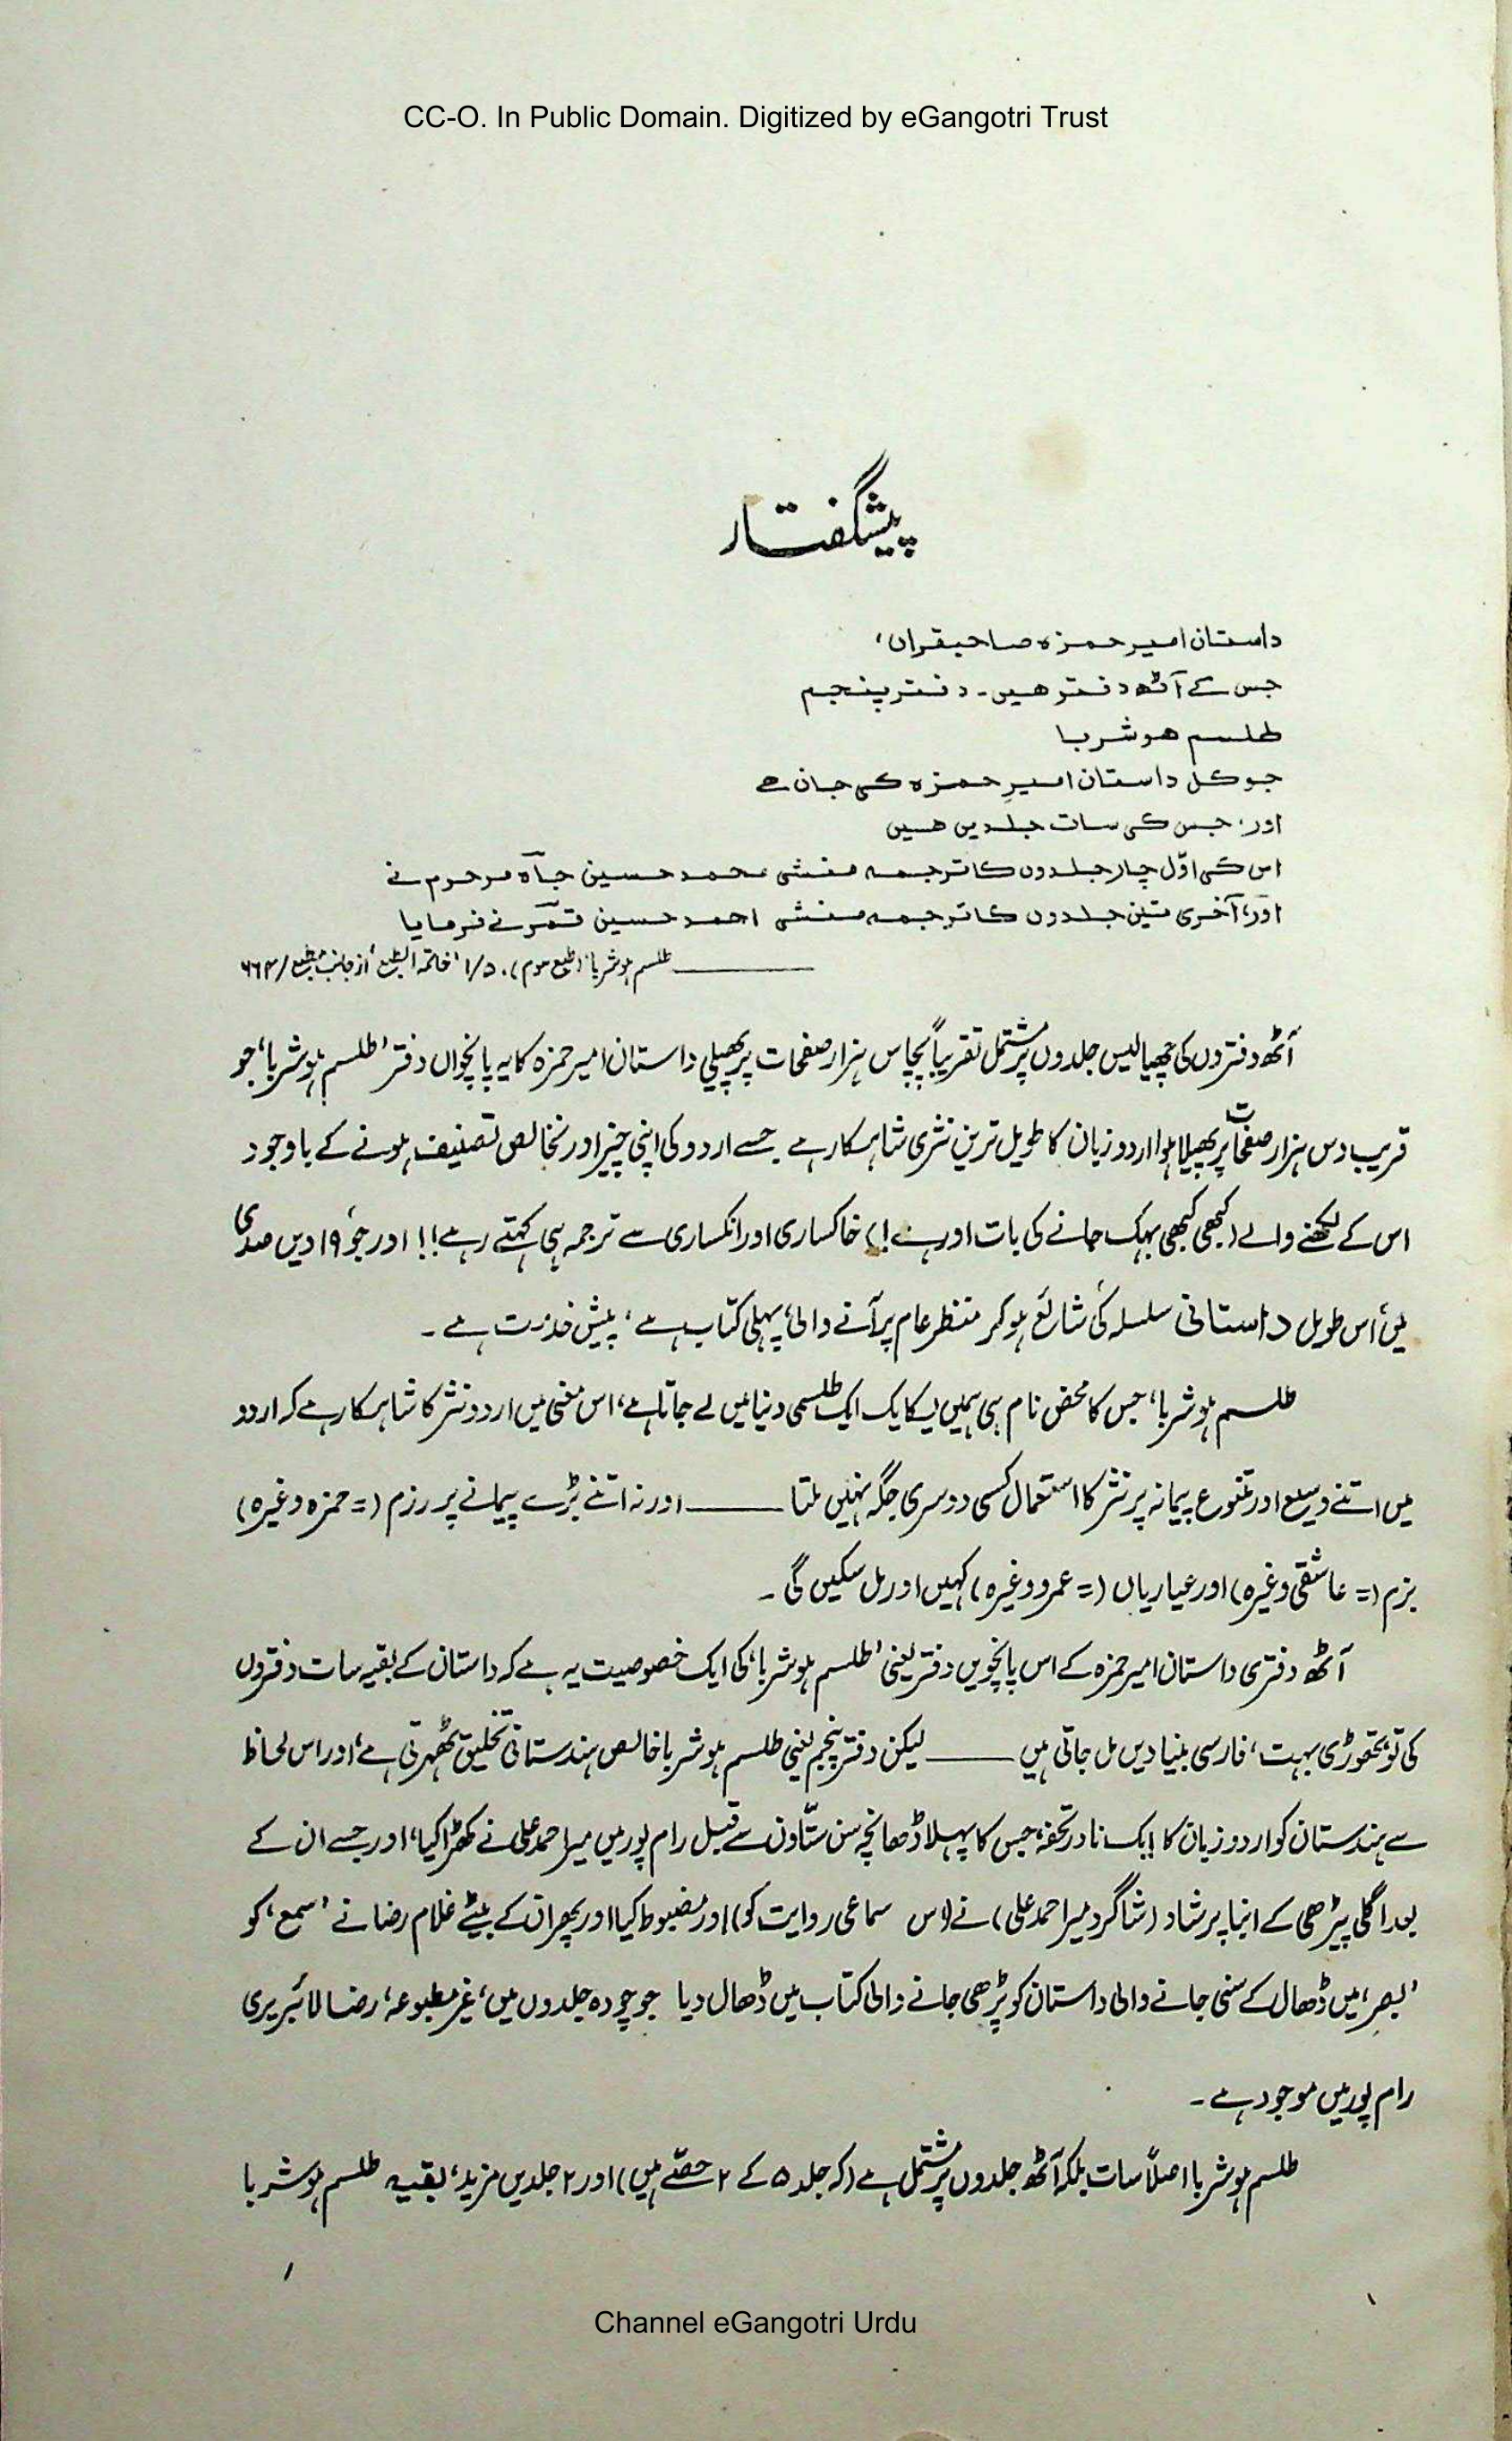 CC-O. In Public Domain. Digitized by eGangotri Trust
پیشگفتار
داستان امیر حمزہ صاحبقراں،
جس کے آٹھ دفتر ہیں۔ دفتر پنجم
طلسم ہوشربا
جو کل داستان امیرِ حمزہ کی جان ہے
اور، جس کی سات جلدیں ہیں
اس کی اوّل چار جلدوں کا ترجمہ منشی محمد حسین جاہ مرحوم نے
اور، آخری تین جلدوں کا ترجمہ منشی احمد حسین قمر نے فرمایا
طلسم ہوشربا (طبع سوم)، ۱/۵ 'خاتمۃ الطبع' از جانب مطبع / ۶۶۴
آٹھ دفتروں کی چھیالیس جلدوں پر مشتمل تقریباً پچاس ہزار صفحات پر پھیلی داستان امیر حمزہ کا یہ پانچواں دفتر 'طلسم ہوشربا' جو
قریب دس ہزار صفحات پر پھیلا ہوا اردو زبان کا طویل ترین نثری شاہکار ہے جسے اردو کی اپنی چیز اور نخالص تصنیف ہونے کے باوجود
اس کے لکھنے والے (کبھی کبھی بہک جانے کی بات اور ہے!) خاکساری اور انکساری سے ترجمہ ہی کہتے رہے!! اور جو ۱۹ویں صدی
میں اس طویل داستانی سلسلہ کی شائع ہو کر منظر عام پر آنے والی پہلی کتاب ہے، پیش خدمت ہے۔
طلسم ہوشربا، جس کا محض نام ہی ہمیں یکایک ایک طلسمی دنیا میں لے جاتا ہے، اس معنی میں اردو نثر کا شاہکار ہے کہ اردو
میں اتنے وسیع اور متنوع پیمانہ پر نثر کا استعمال کسی دوسری جگہ نہیں ملتا ــــــ اور نہ اتنے بڑے پیمانے پر رزم (= حمزہ وغیرہ)
بزم (= عاشقی وغیرہ) اور عیاریاں (= عمرو وغیرہ) کہیں اور مل سکیں گی۔
آٹھ دفتری داستان امیر حمزہ کے اس پانچویں دفتر یعنی 'طلسم ہوشربا' کی ایک خصوصیت یہ ہے کہ داستان کے بقیہ سات دفتروں
کی تو تھوڑی بہت، فارسی بنیادیں مل جاتی ہیں ــــــ لیکن دفتر پنجم یعنی طلسم ہوشربا خالص ہندستانی تخلیق ٹھہرتی ہے، اور اس لحاظ
سے ہندستان کو اردو زبان کا ایک نادر تحفہ، جس کا پہلا ڈھانچہ سن ستّاون سے قبل رام پور میں میر احمد علی نے کھڑا کیا، اور جسے ان کے
بعد اگلی پیڑھی کے انبا پرشاد (شاگرد میر احمد علی) نے (اس سماعی روایت کو) اور مضبوط کیا اور پھر ان کے بیٹے غلام رضا نے 'سمع' کو
'بصر' میں ڈھال کے سنی جانے والی داستان کو پڑھی جانے والی کتاب میں ڈھال دیا جو چودہ جلدوں میں، غیر مطبوعہ، رضا لائبریری
رام پور میں موجود ہے۔
طلسم ہوشربا اصلاً سات بلکہ آٹھ جلدوں پر مشتمل ہے (کہ جلد ۵ کے ۲ حصّے ہیں) اور ۲ جلدیں مزید، بقیہ طلسم ہوشربا
۱
Channel eGangotri Urdu